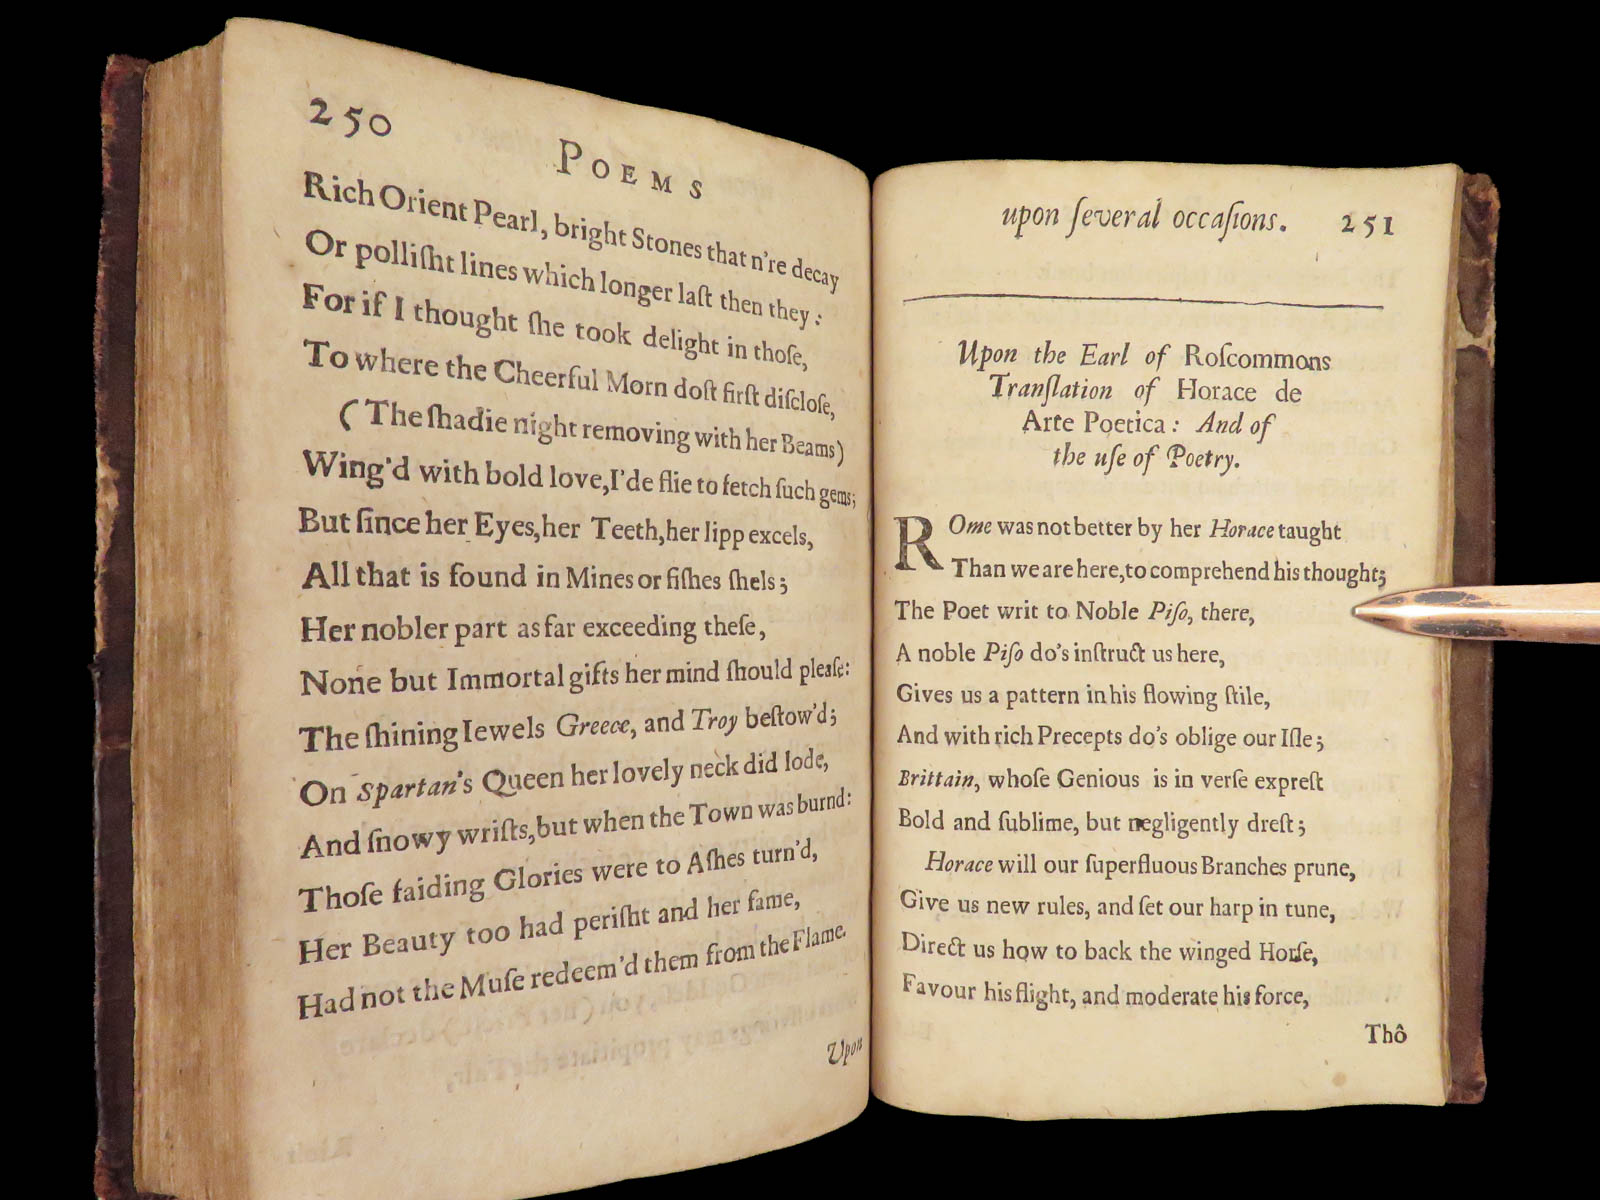 250
POEMS
Rich Orient Pearl, bright Stones that n're decay
Or polliſht lines which longer laſt then they:
For if I thought ſhe took delight in thoſe,
To where the Cheerful Morn doſt firſt diſcloſe,
(The ſhadie night removing with her Beams)
Wing'd with bold love,I'de flie to fetch ſuch gems;
But ſince her Eyes,her Teeth,her lipp excels,
All that is found in Mines or fiſhes ſhels;
Her nobler part as far exceeding theſe,
None but Immortal gifts her mind ſhould pleaſe:
The ſhining Iewels Greece, and Troy beſtow'd;
On Spartan's Queen her lovely neck did lode,
And ſnowy wriſts,but when the Town was burnd:
Thoſe faiding Glories were to Aſhes turn'd,
Her Beauty too had periſht and her fame,
Had not the Muſe redeem'd them from the Flame.
Upon
upon ſeveral occaſions. 251
Upon the Earl of Roſcommons
Tranſlation of Horace de
Arte Poetica: And of
the uſe of Poetry.
ROme was not better by her Horace taught
Than we are here,to comprehend his thought;
The Poet writ to Noble Piſo, there,
A noble Piſo do's inſtruct us here,
Gives us a pattern in his flowing ſtile,
And with rich Precepts do's oblige our Iſle;
Brittain, whoſe Genious is in verſe expreſt
Bold and ſublime, but negligently dreſt;
Horace will our ſuperfluous Branches prune,
Give us new rules, and ſet our harp in tune,
Direct us how to back the winged Horſe,
Favour his flight, and moderate his force,
Thô